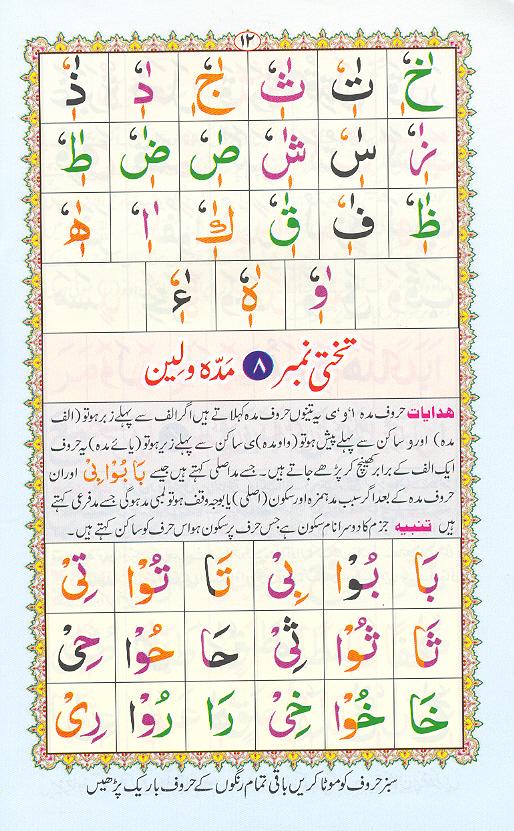 ۱۲
خٰٖٗ تٰٖٗ ثٰٖٗ جٰٖٗ دٰٖٗ ذٰٖٗ
زٰٖٗ سٰٖٗ شٰٖٗ صٰٖٗ ضٰٖٗ طٰٖٗ
ظٰٖٗ فٰٖٗ قٰٖٗ كٰٖٗ اٰٖٗ ھٰٖٗ
وٰٖٗ ہٰٖٗ ءٰٖٗ
تختی نمبر ۸ مَدّہ و لین
ھدایات حروف مدہ ا و ی یہ تینوں حروف مدہ کہلاتے ہیں اگر الف سے پہلے زبر ہو تو (الف
مدہ) اور و ساکن سے پہلے پیش ہو تو (واو مدہ) ی ساکن سے پہلے زیر ہو تو (یائے مدہ) یہ حروف
ایک الف کے برابر کھینچ کر پڑھے جاتے ہیں۔ جسے مد اصلی کہتے ہیں جیسے بَا بُوْا بِیْ اور ان
حروف مدہ کے بعد اگر سبب مد ہمزہ اور سکون (اصلی) یا بوجہ وقف ہو تو لمبی مد ہوگی جسے مد فرعی کہتے
ہیں تنبیہ جزم کا دوسرا نام سکون ہے جس حرف پر سکون ہو اس حرف کو ساکن کہتے ہیں۔
بَا بُوْا بِیْ تَا تُوْا تِیْ
ثَا ثُوْا ثِیْ حَا حُوْا حِیْ
خَا خُوْا خِیْ رَا رُوْا رِیْ
سبز حروف کو موٹا کریں باقی تمام رنگوں کے حروف باریک پڑھیں